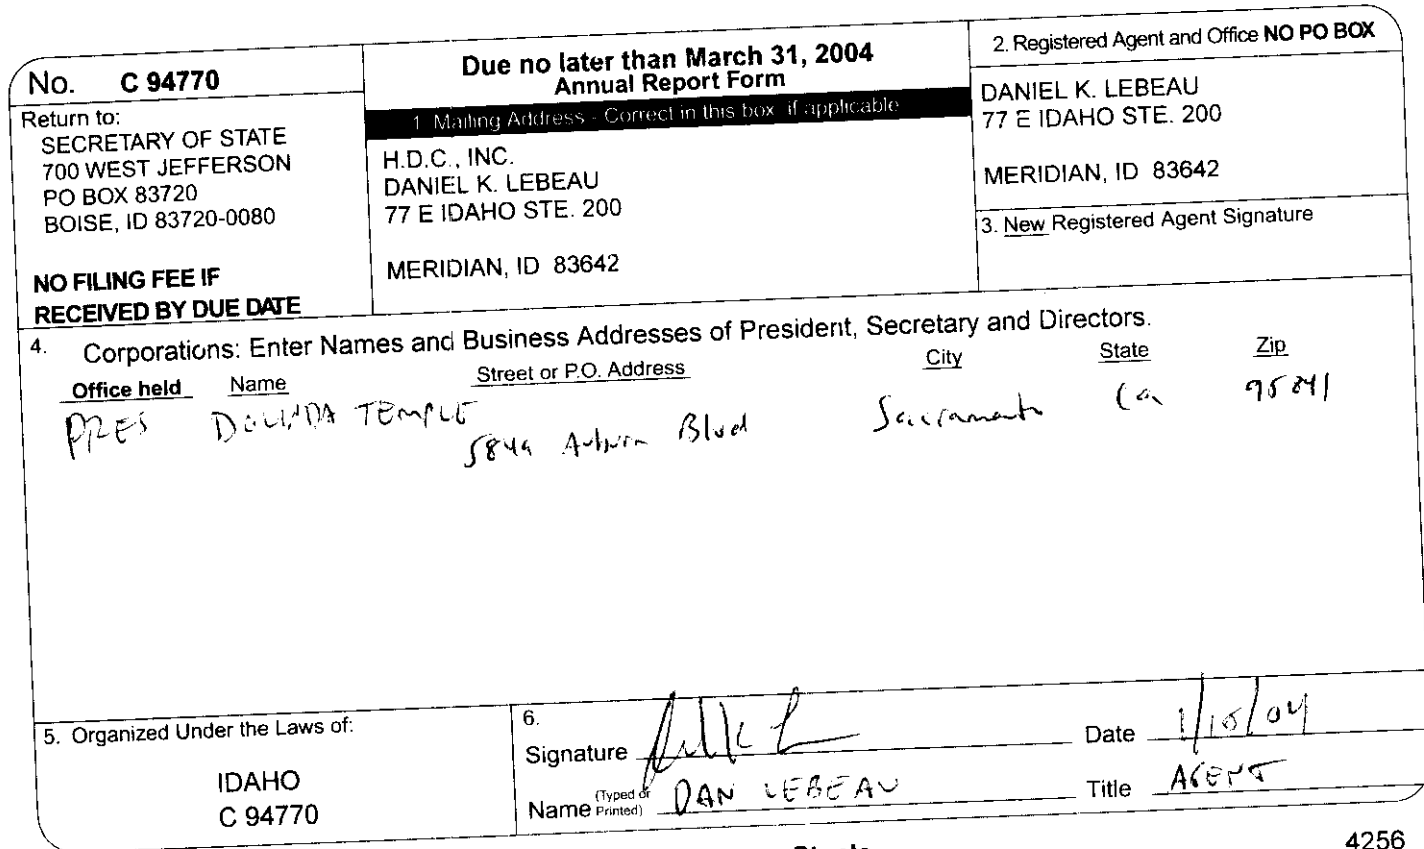 No. C 94770
Return to:
SECRETARY OF STATE
700 WEST JEFFERSON
PO BOX 83720
BOISE, ID 83720-0080
NO FILING FEE IF
RECEIVED BY DUE DATE
Due no later than March 31, 2004
Annual Report Form
1. Mailing Address - Correct in this box if applicable
H.D.C., INC.
DANIEL K. LEBEAU
77 E IDAHO STE. 200
MERIDIAN, ID 83642
2. Registered Agent and Office NO PO BOX
DANIEL K. LEBEAU
77 E IDAHO STE. 200
MERIDIAN, ID 83642
3. New Registered Agent Signature
4. Corporations: Enter Names and Business Addresses of President, Secretary and Directors.
Office held Name Street or P.O. Address City State Zip
PRES TEMPLE 5849 Auburn Blvd Sacramento Ca 95841
5. Organized Under the Laws of:
IDAHO
C 94770
6.
Signature Date 1/15/04
Name (Typed or Printed) DAN LEBEAU Title AGENT
4256